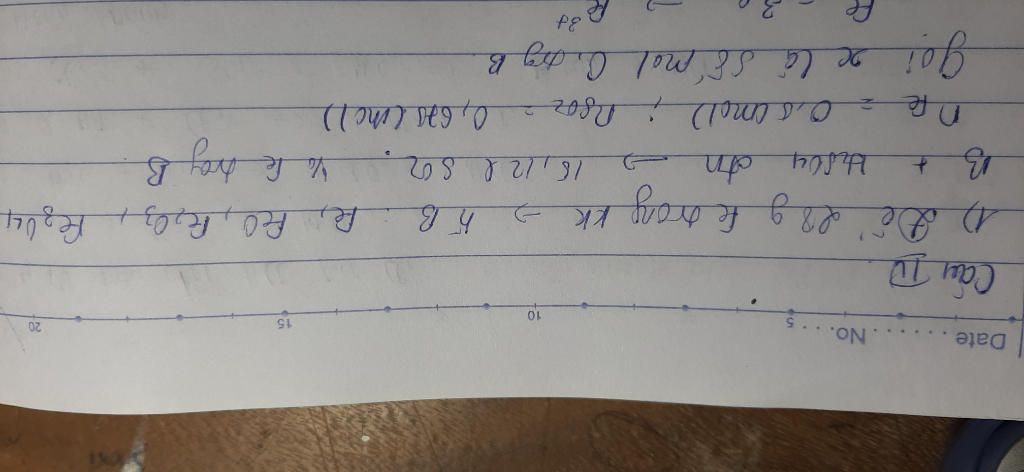 Date........No.....
5 10 15 20
Câu IV
1) Để 28 g Fe trong kk → h² B: Fe, FeO, Fe2O3, Fe3O4
B + H2SO4 đn → 15,12 l SO2. % Fe trog B
n Fe = 0,5 (mol) ; nSO2 = 0,675 (mol)
gọi x là số mol O trg B
Fe - 3e → Fe3+